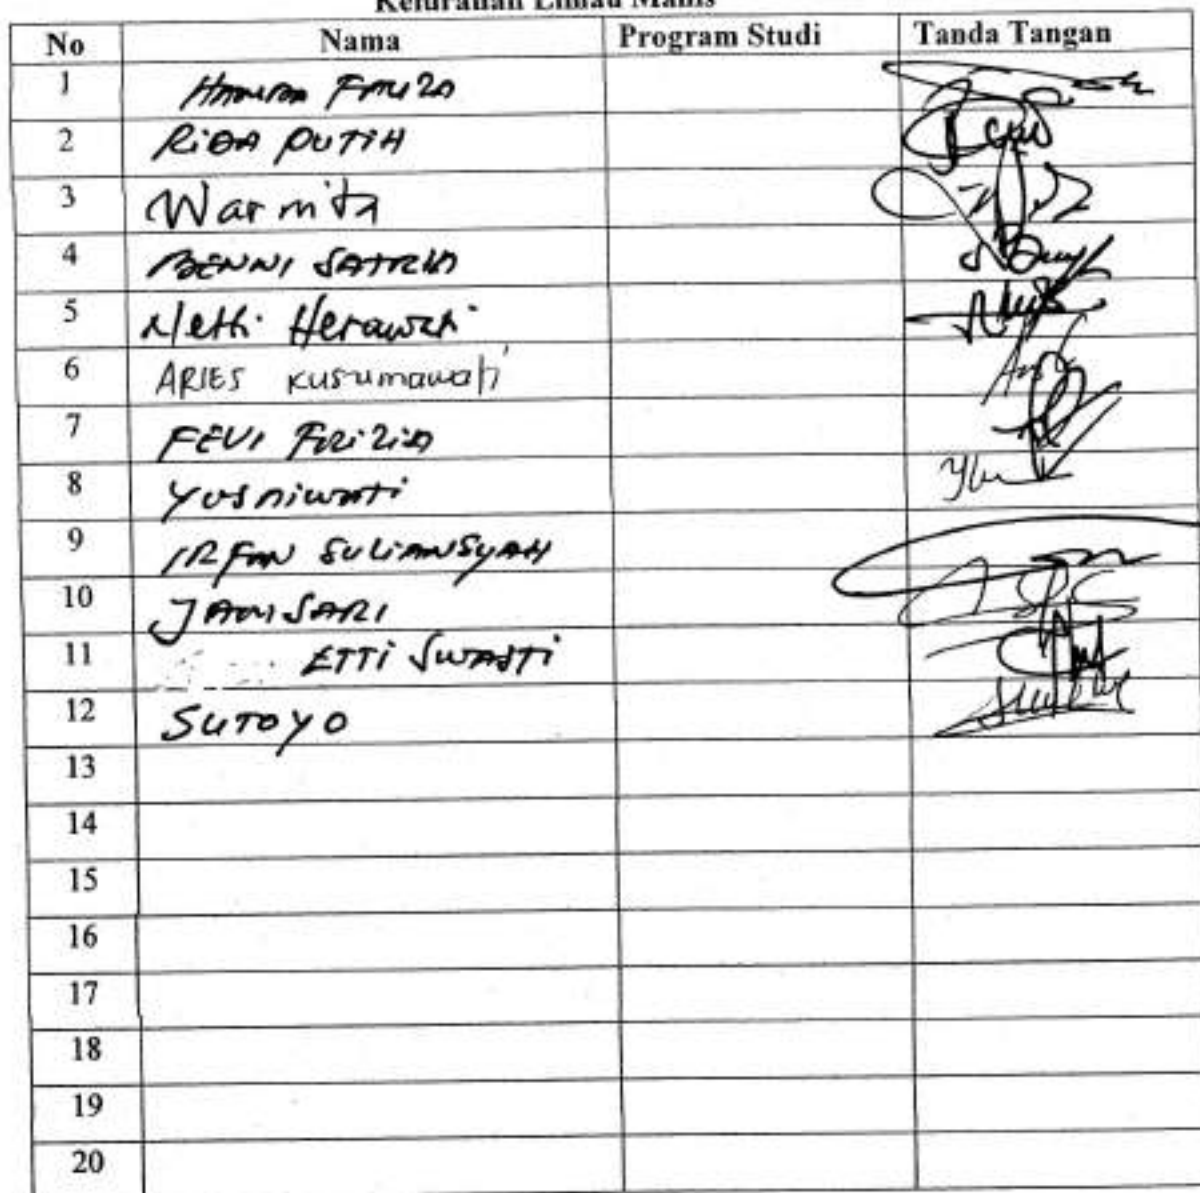 Kelurahan Limau Manis
No Nama Program Studi Tanda Tangan
1 FAUZA
2 RiDA PUTiH
3 Warnita
4 BENNI SATRIA
5 Netti Herawati
6 ARIES Kusumawati
7 FEVI FRiZiA
8 Yusniwati
9 IRFAN SULiANSYAH
10 JAMSARI
11 ETTi SWASTi
12 SUTOYO
13
14
15
16
17
18
19
20